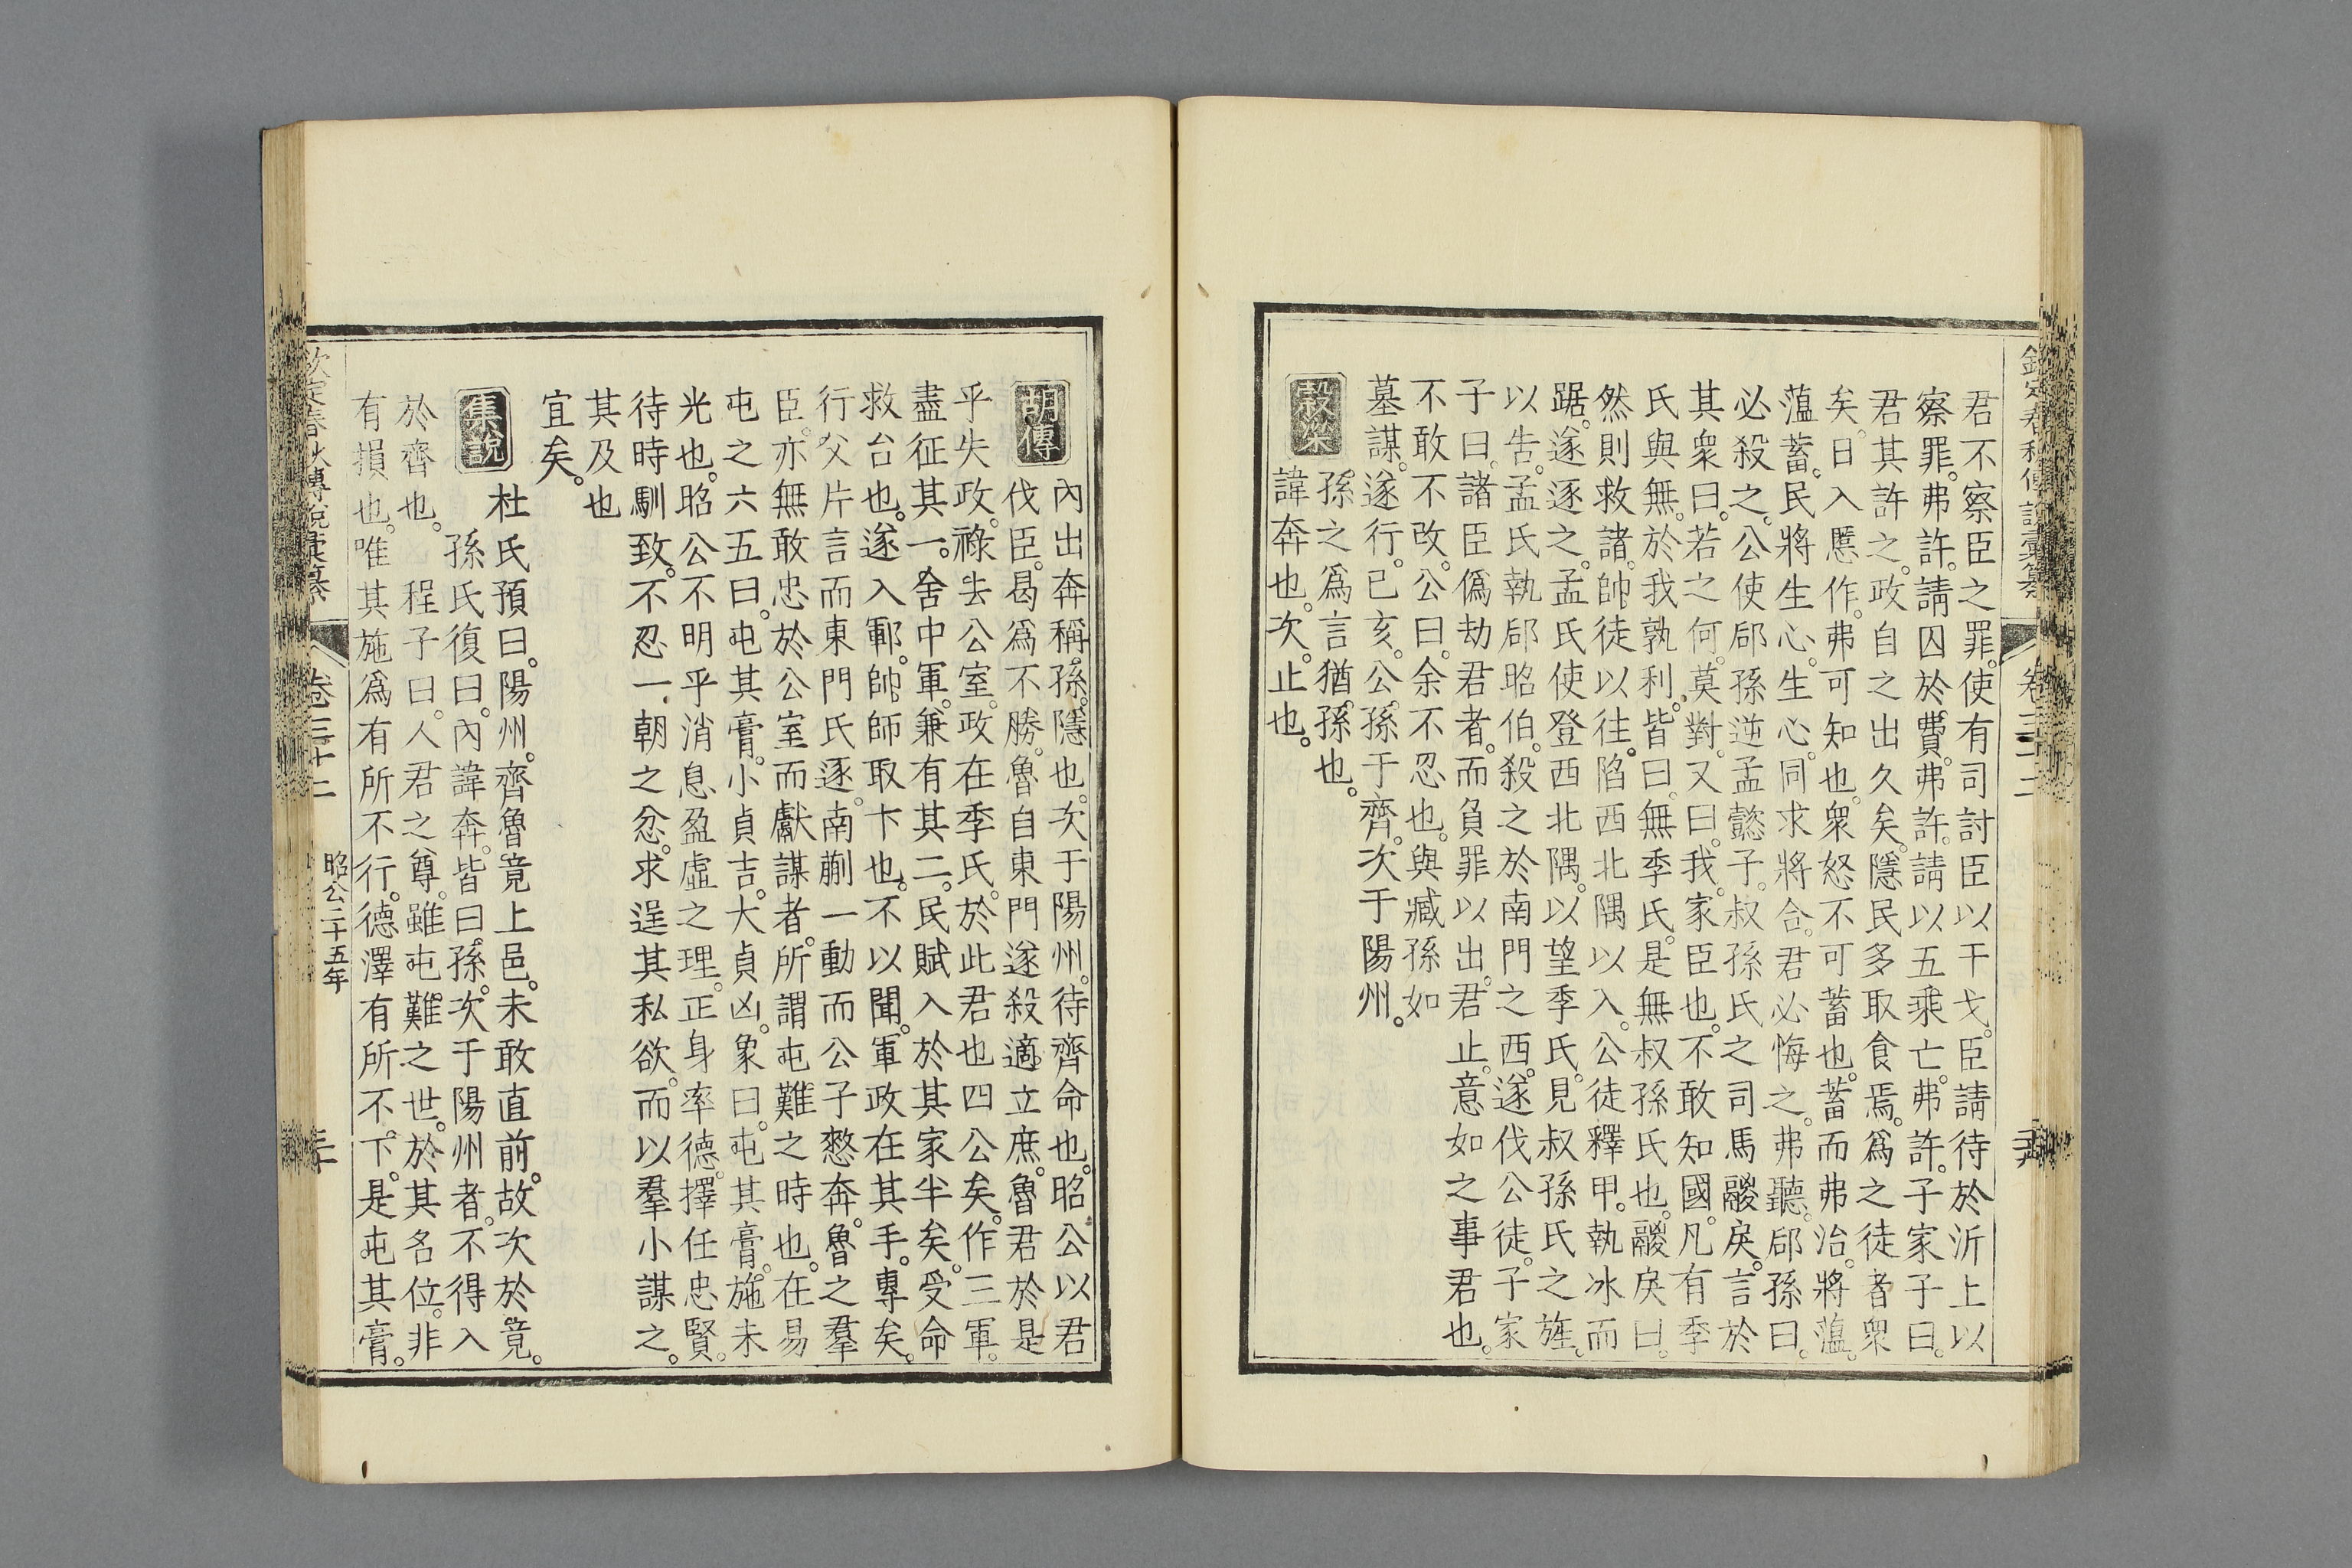 君不察臣之罪。使有司討臣以干戈。臣請待於沂上以
察罪。弗許。請囚於費。弗許。請以五乘亡。弗許。子家子曰。
君其許之。政自之出久矣。隱民多取食焉。爲之徒者衆
矣。日入慝作。弗可知也。衆怒不可蓄也。蓄而弗治。將薀。
薀蓄。民將生心。生心。同求將合。君必悔之。弗聽。郈孫曰。
必殺之。公使郈孫逆孟懿子。叔孫氏之司馬鬷戾。言於
其衆曰。若之何。莫對。又曰。我家臣也。不敢知國。凡有季
氏與無。於我孰利。皆曰。無季氏。是無叔孫氏也。鬷戾曰。
然則救諸。帥徒以往。陷西北隅以入。公徒釋甲。執冰而
踞。遂逐之。孟氏使登西北隅。以望季氏。見叔孫氏之旌。
以告。孟氏執郈昭伯。殺之於南門之西。遂伐公徒。子家
子曰。諸臣僞劫君者。而負罪以出。君止。意如之事君也。
不敢不改。公曰。余不忍也。與臧孫如
墓謀。遂行。已亥。公孫于齊。次于陽州。
穀梁
孫之爲言猶孫也。
諱奔也。次。止也。
胡傳
內出奔稱孫。隱也。次于陽州。待齊命也。昭公以君
伐臣。曷爲不勝。魯自東門遂殺適立庶。魯君於是
乎失政。祿去公室。政在季氏。於此君也四公矣。作三軍。
盡征其一。舍中軍。兼有其二。民賦入於其家半矣。受命
救台也。遂入鄆。帥師取卞也。不以聞。軍政在其手。專矣。
行父片言而東門氏逐。南蒯一動而公子憖奔。魯之羣
臣。亦無敢忠於公室而獻謀者。所謂屯難之時也。在易
屯之六五曰。屯其膏。小貞吉。大貞凶。象曰。屯其膏。施未
光也。昭公不明乎消息盈虛之理。正身率德。擇任忠賢。
待時馴致。不忍一朝之忿。求逞其私欲。而以羣小謀之。
其及也
宜矣。
集說
杜氏預曰。陽州。齊魯竟上邑。未敢直前。故次於竟。
孫氏復曰。內諱奔。皆曰孫。次于陽州者。不得入
於齊也。程子曰。人君之尊。雖屯難之世。於其名位。非
有損也。唯其施爲有所不行。德澤有所不下。是屯其膏。
欽定春秋傳說彙纂
卷三十二
昭公二十五年